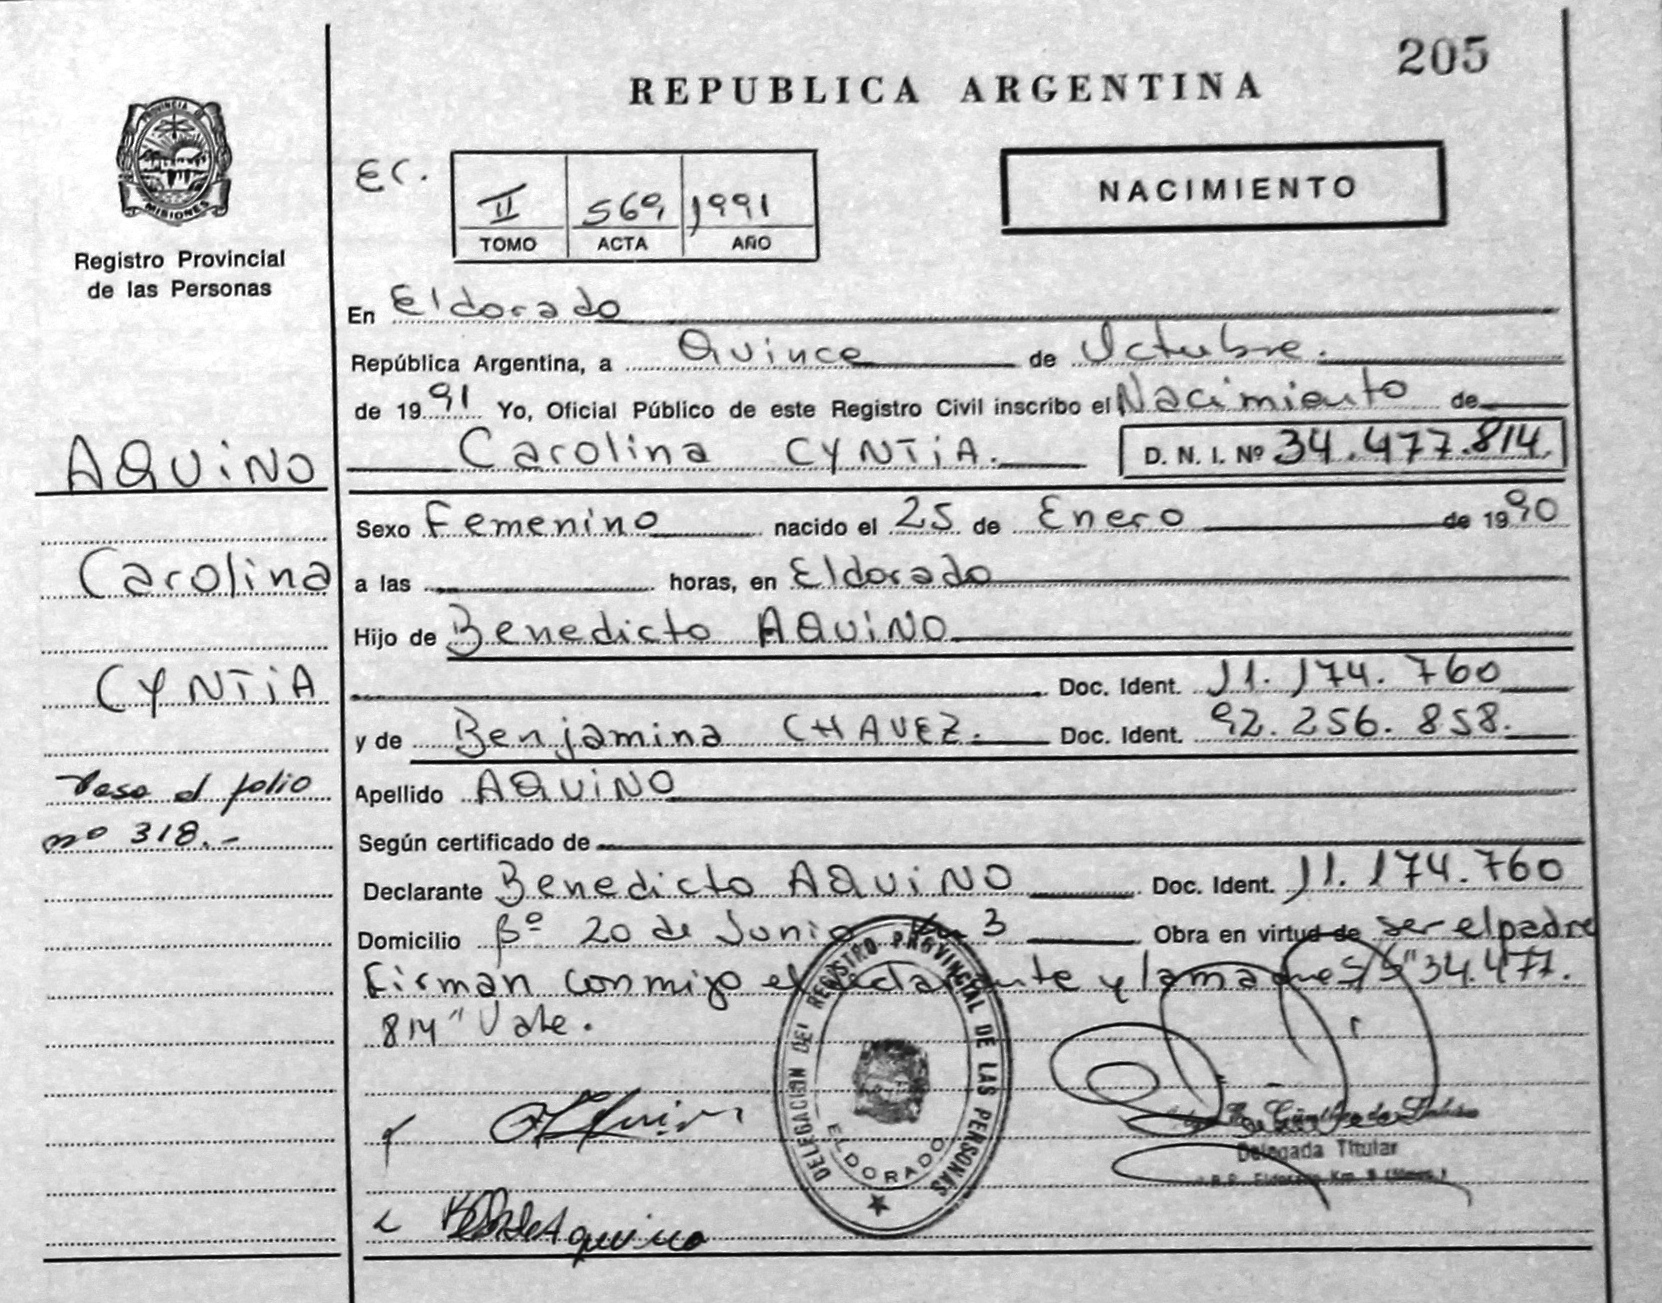 205
REPUBLICA ARGENTINA
PROVINCIA DE
MISIONES
Registro Provincial
de las Personas
EC.
II 569 1991
TOMO ACTA AÑO
NACIMIENTO
En Eldorado
República Argentina, a Quince de Octubre.
de 1991 Yo, Oficial Público de este Registro Civil inscribo el Nacimiento de
Carolina CYNTiA. D. N. I. Nº 34.477.814.
AQUiNO
Carolina
CYNTiA
Pasa al folio
nº 318.-
Sexo Femenino nacido el 25 de Enero de 1990
a las horas, en Eldorado
Hijo de Benedicto AQUiNO
Doc. Ident. 11.174.760
y de Benjamina CHAVEZ. Doc. Ident. 92.256.858.
Apellido AQUiNO
Según certificado de
Declarante Benedicto AQUiNO Doc. Ident. 11.174.760
Domicilio Bº 20 de Junio Km 3 Obra en virtud de ser el padre
Firman conmigo el declarante y la madre S/S "34.477.
814" Vale.
DELEGACION DEL REGISTRO PROVINCIAL DE LAS PERSONAS
ELDORADO
Delegada Titular
Eldorado Km. 9 (Mnes.)
Aquino